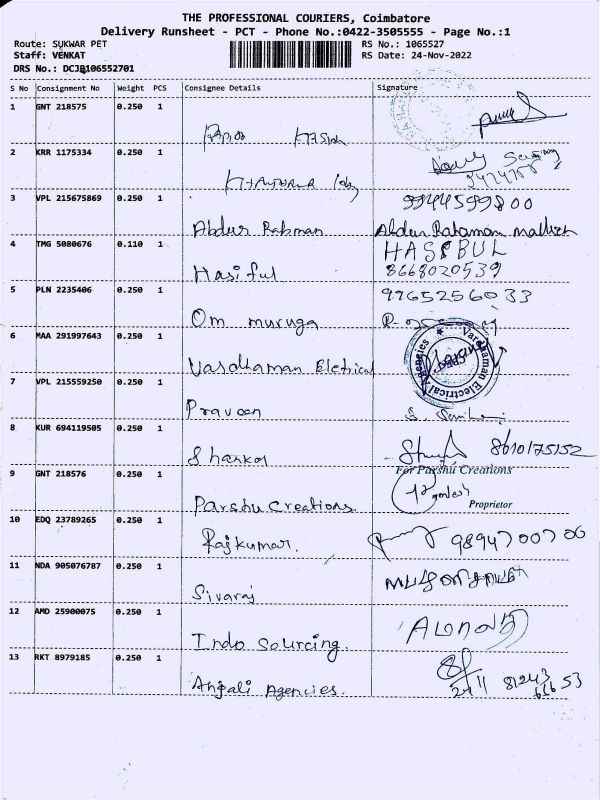 THE PROFESSIONAL COURIERS, Coimbatore
Delivery Runsheet - PCT - Phone No.:0422-3505555 - Page No.:1
Route: SUKWAR PET
RS No.: 1065527
Staff: VENKAT
RS Date: 24-Nov-2022
DRS No.: DCJB106552701
S No Consignment No Weight PCS Consignee Details Signature
1 GNT 218575 0.250 1
2 KRR 1175334 0.250 1
3 VPL 215675869 0.250 1 9944599800
Abdur Rahman Abdur Rahaman mallick
4 TMG 5080676 0.110 1 HASIBUL
Hasiful 8668020539
5 PLN 2235406 0.250 1 9965256033
Om muruga
6 MAA 291997643 0.250 1
Vardhaman Eletrical Vardhaman Electrical Agencies
7 VPL 215559250 0.250 1
Praveen
8 KUR 694119505 0.250 1 8610175152
Shankar
9 GNT 218576 0.250 1 For Parshu Creations
Parshu Creations. Proprietor
10 EDQ 23789265 0.250 1
Rajkumar. 9894700706
11 NDA 905076787 0.250 1
Sivaraj
12 AMD 25900075 0.250 1
Indo Sourcing.
13 RKT 8979185 0.250 1
Anjali Agencies. 24/11 81243
66653